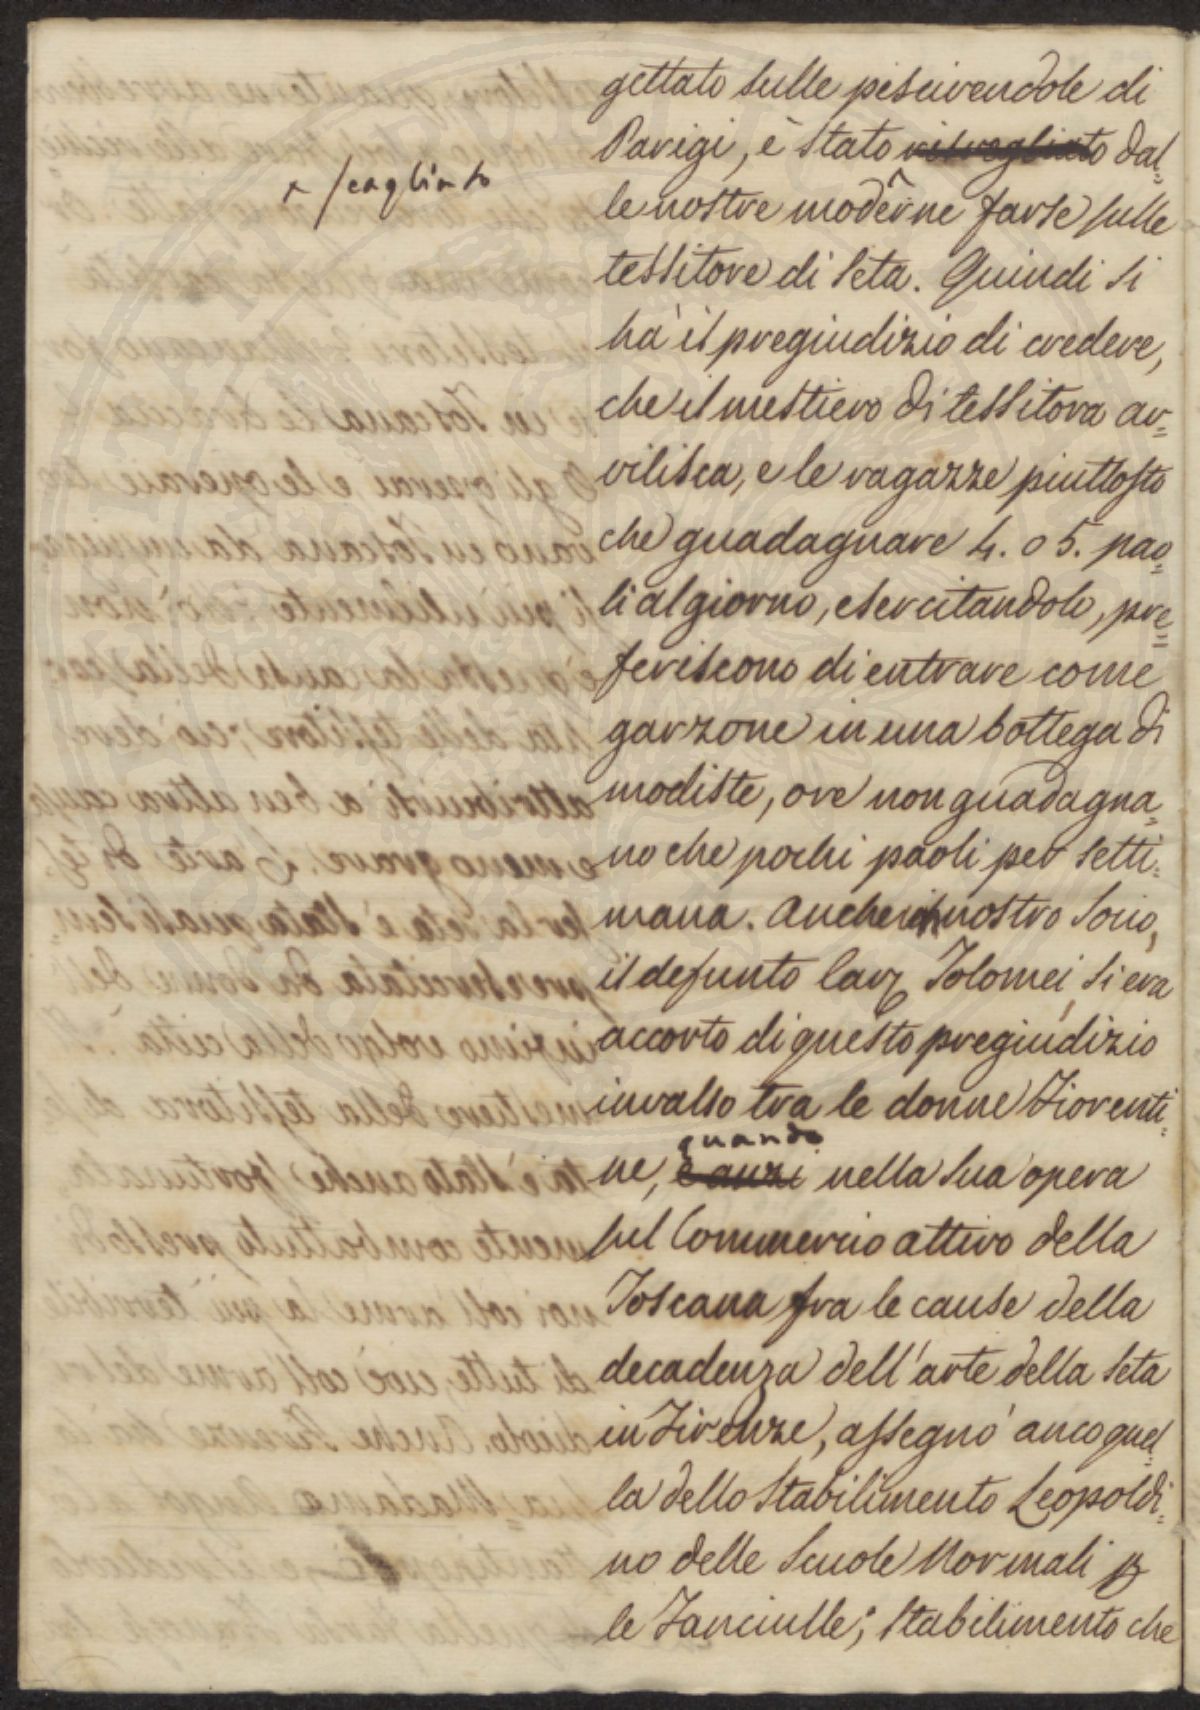 gettato sulle pescivendole di
Parigi, è stato risvegliato dal=
+ scagliato
le nostre moderne farse sulle
tessitore di seta. Quindi si
ha il pregiudizio di credere,
che il mestiero di tessitora av=
vilisca, e le ragazze piuttosto
che guadagnare 4. o 5. pao=
li al giorno, esercitandolo, pre=
feriscono di entrare come
garzone in una bottega di
modiste, ove non guadagna=
no che pochi paoli per setti=
mana. Anche il nostro Socio,
il defunto Cav. Tolomei, si era
accorto di questo pregiudizio
invalso tra le donne Fiorenti=
quando
ne, e anzi nella sua opera
sul Commercio attivo della
Toscana fra le cause della
decadenza dell'arte della seta
in Firenze, assegnò anco quel=
la dello Stabilimento Leopoldi=
no delle Scuole Normali p
le Fanciulle; Stabilimento che